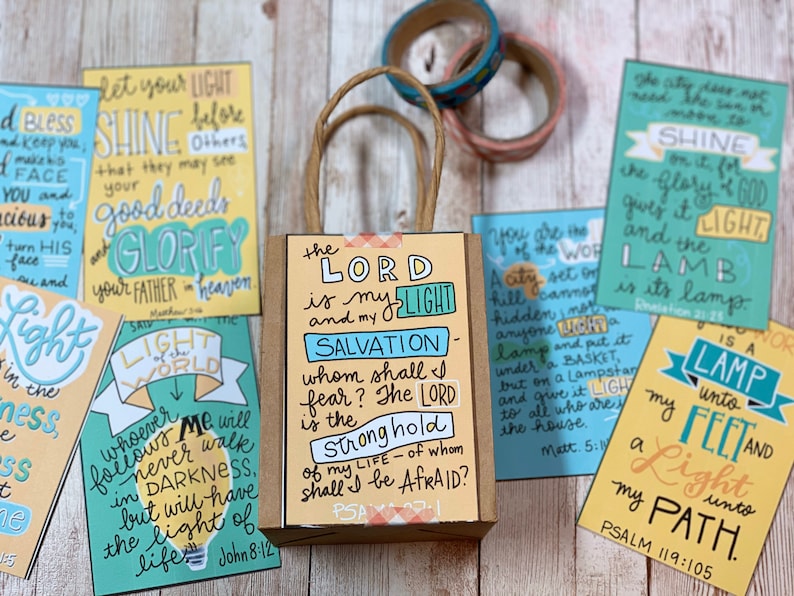 BLESS
and KEEP you,
make his
FACE
YOU and
to you,
turn HIS
face
let your LIGHT
SHINE before
others,
that they may see
your
good deeds
and GLORIFY
your FATHER in heaven.
Matthew 5:16
Light
in the
LIGHT
of the
WORLD
whoever
follows Me will
never walk
in DARKNESS,
but will have
the light of
life.
John 8:12
the
LORD
is my LIGHT
and my
SALVATION -
whom shall I
fear? The LORD
is the
Stronghold
of my LIFE - of whom
shall I be AFRAID?
PSALM 27:1
You are the
of the
A city set on
hill cannot
hidden
anyone LIGHT a
lamp and put it
under a BASKET,
but on a Lampstand
and give it LIGHT
to all who are
the house.
Matt. 5:1
The city does not
need the sun or
moon to
SHINE
on it, for
the Glory of GOD
gives it LIGHT,
and the
LAMB
is its lamp.
Revelation 21:23
IS A
LAMP
unto
my FEET AND
a Light unto
my PATH.
PSALM 119:105